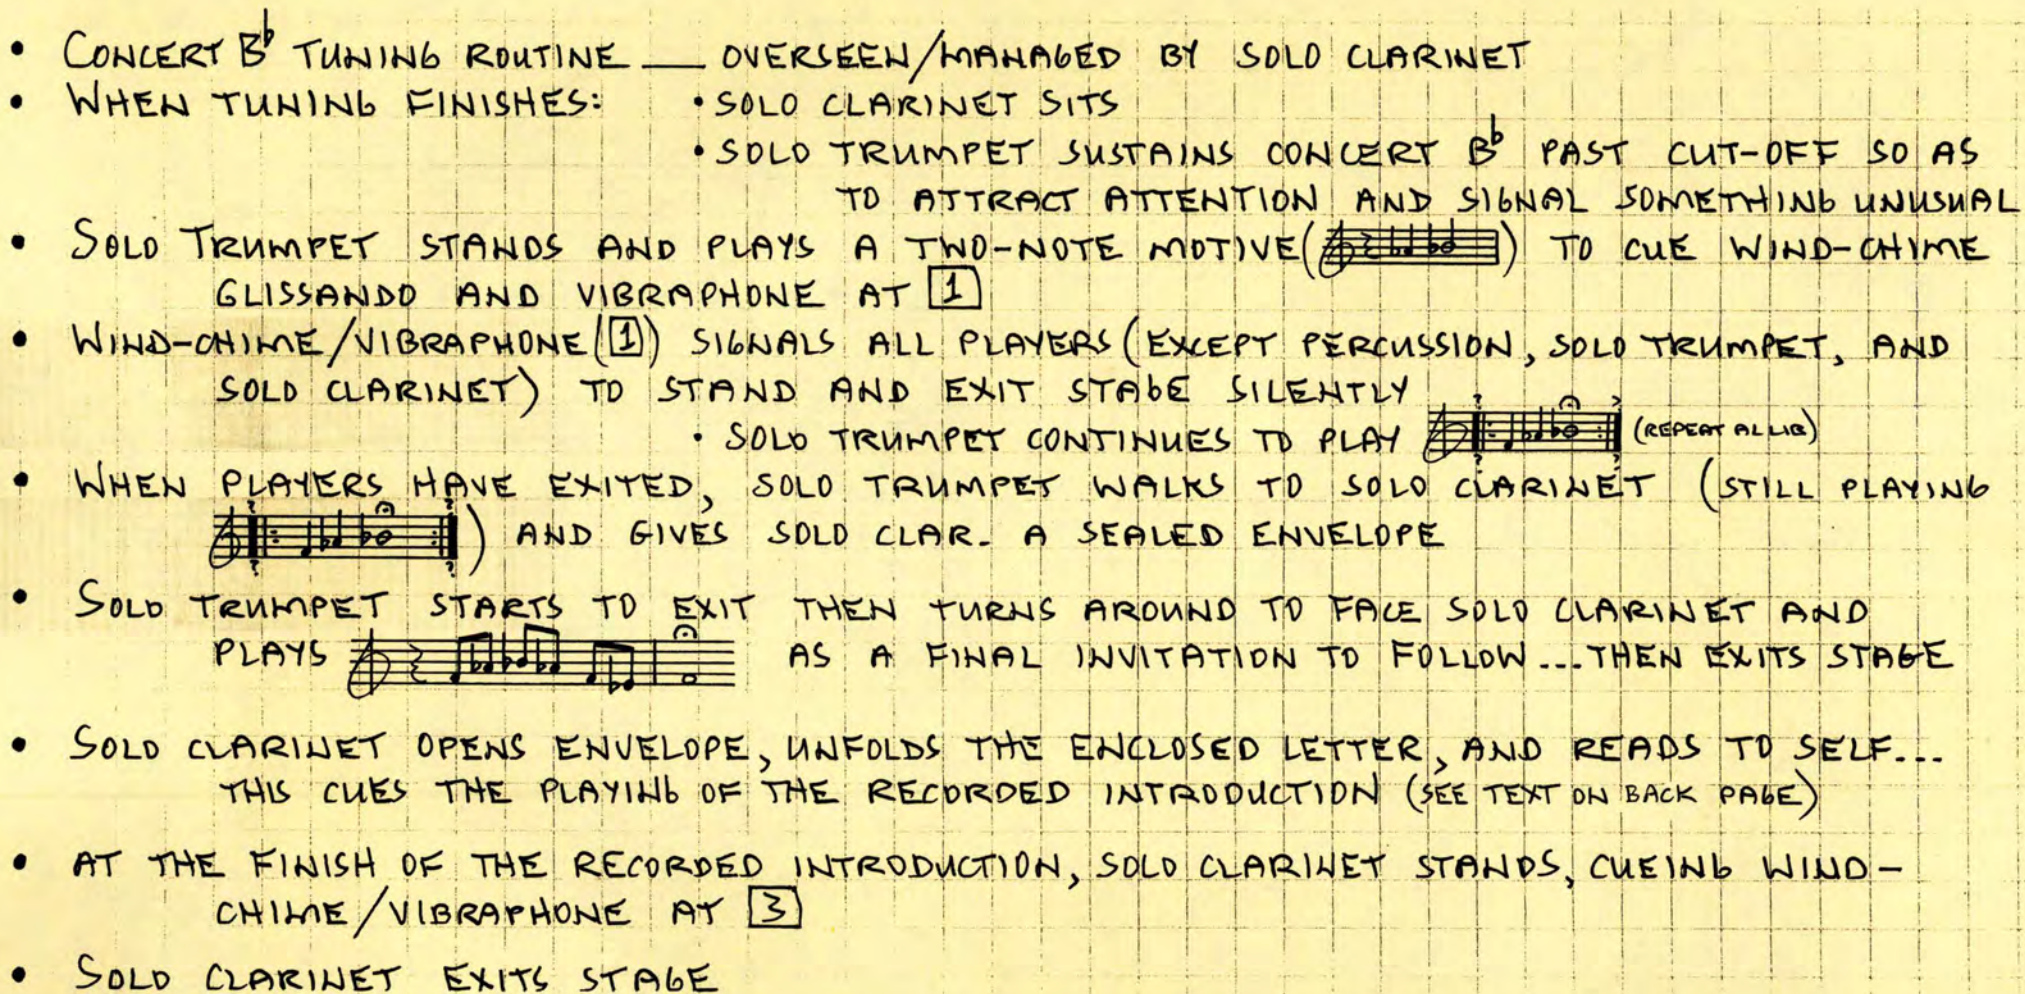 • CONCERT B♭ TUNING ROUTINE — OVERSEEN/MANAGED BY SOLO CLARINET
• WHEN TUNING FINISHES: • SOLO CLARINET SITS
• SOLO TRUMPET SUSTAINS CONCERT B♭ PAST CUT-OFF SO AS
TO ATTRACT ATTENTION AND SIGNAL SOMETHING UNUSUAL
• SOLO TRUMPET STANDS AND PLAYS A TWO-NOTE MOTIVE ( ) TO CUE WIND-CHIME
GLISSANDO AND VIBRAPHONE AT 1
• WIND-CHIME/VIBRAPHONE (1) SIGNALS ALL PLAYERS (EXCEPT PERCUSSION, SOLO TRUMPET, AND
SOLO CLARINET) TO STAND AND EXIT STAGE SILENTLY
• SOLO TRUMPET CONTINUES TO PLAY (REPEAT AL LIB)
• WHEN PLAYERS HAVE EXITED, SOLO TRUMPET WALKS TO SOLO CLARINET (STILL PLAYING
) AND GIVES SOLO CLAR. A SEALED ENVELOPE
• SOLO TRUMPET STARTS TO EXIT THEN TURNS AROUND TO FACE SOLO CLARINET AND
PLAYS AS A FINAL INVITATION TO FOLLOW... THEN EXITS STAGE
• SOLO CLARINET OPENS ENVELOPE, UNFOLDS THE ENCLOSED LETTER, AND READS TO SELF...
THIS CUES THE PLAYING OF THE RECORDED INTRODUCTION (SEE TEXT ON BACK PAGE)
• AT THE FINISH OF THE RECORDED INTRODUCTION, SOLO CLARINET STANDS, CUEING WIND-
CHIME/VIBRAPHONE AT 3
• SOLO CLARINET EXITS STAGE